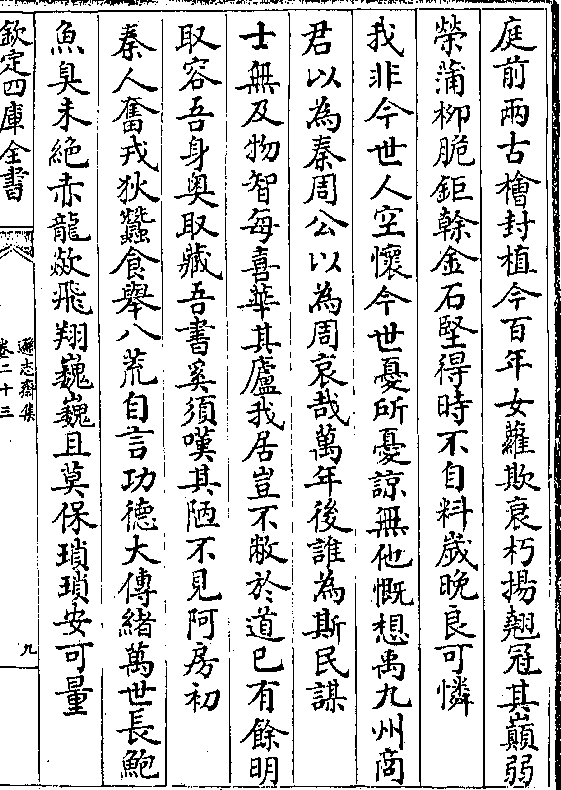 庭前兩古檜封植今百年女蘿欺衰朽揚翹冠其巔弱
榮蒲柳脆鉅榦金石堅得時不自料嵗晚良可憐
我非今世人空懷今世憂所憂諒無他慨想禹九州商
君以為秦周公以為周哀哉萬年後誰為斯民謀
士無及物智每喜華其廬我居豈不敝於道已有餘明
取容吾身奥取藏吾書奚須嘆其陋不見阿房初
秦人奮戎狄蠶食舉八荒自言功德大傳緒萬世長鮑
魚臭未絶赤龍歘飛翔巍巍且莫保瑣瑣安可量
欽定四庫全書
遜志齋集
卷二十三
九